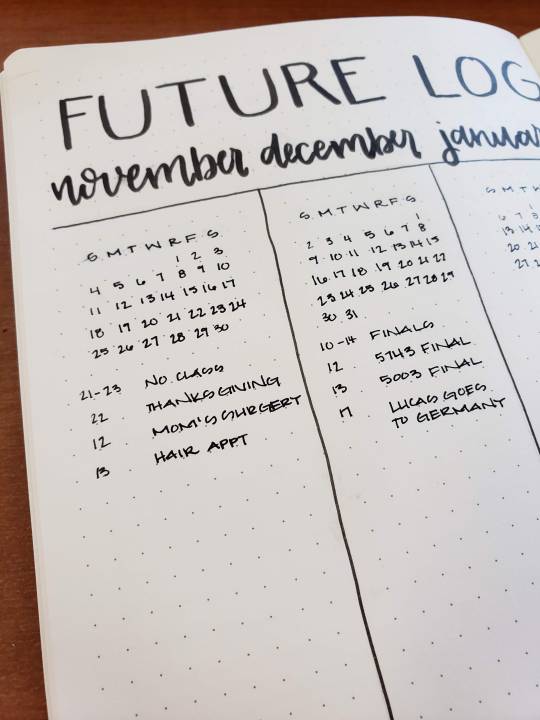 FUTURE LOG
november december januar
S M T W R F S
1 2 3
4 5 6 7 8 9 10
11 12 13 14 15 16 17
18 19 20 21 22 23 24
25 26 27 28 29 30
21-23 NO CLASS
22 THANKSGIVING
12 MOM'S SURGERY
13 HAIR APPT
S M T W R F S
1
2 3 4 5 6 7 8
9 10 11 12 13 14 15
16 17 18 19 20 21 22
23 24 25 26 27 28 29
30 31
10-14 FINALS
12 5743 FINAL
13 5003 FINAL
17 LUCAS GOES
TO GERMANY
S M T W
1
6 7 8
13 14 15
20 21
27 28